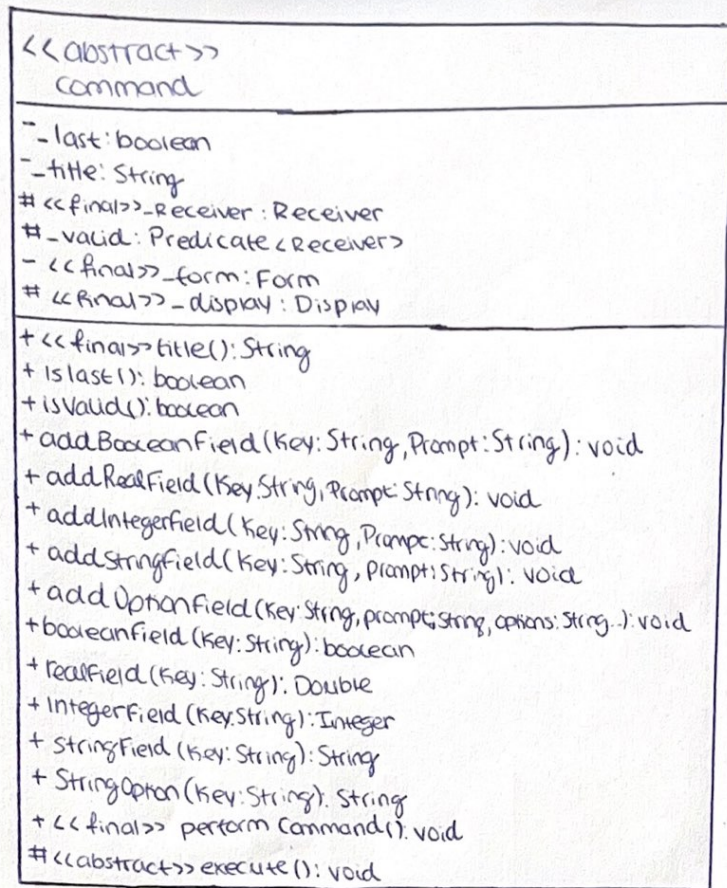 <<abstract>>
command
- _last: boolean
- _title: String
# <<final>> _Receiver : Receiver
# _valid: Predicate <Receiver>
- <<final>> _form: Form
# <<final>> _display : Display
+ <<final>> title(): String
+ islast(): boolean
+ isValid(): boolean
+ addBooleanField(Key: String, Prompt: String): void
+ addRealField(Key: String, Prompt: String): void
+ addIntegerfield(Key: String, Prompt: String): void
+ addStringfield(Key: String, prompt: String): void
+ addOptionField(Key: String, prompt: String, options: String..): void
+ booleanfield(Key: String): boolean
+ realField(Key: String): Double
+ IntegerField (Key: String): Integer
+ StringField (Key: String): String
+ StringOption(Key: String): String
+ <<final>> perform Command(): void
# <<abstract>> execute(): void